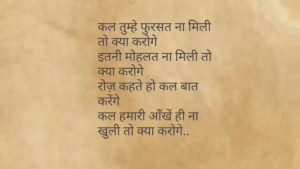 कल तुम्हे फुरसत ना मिली
तो क्या करोगे
इतनी मोहलत ना मिली तो
क्या करोगे
रोज़ कहते हो कल बात
करेंगे
कल हमारी आँखें ही ना
खुली तो क्या करोगे..